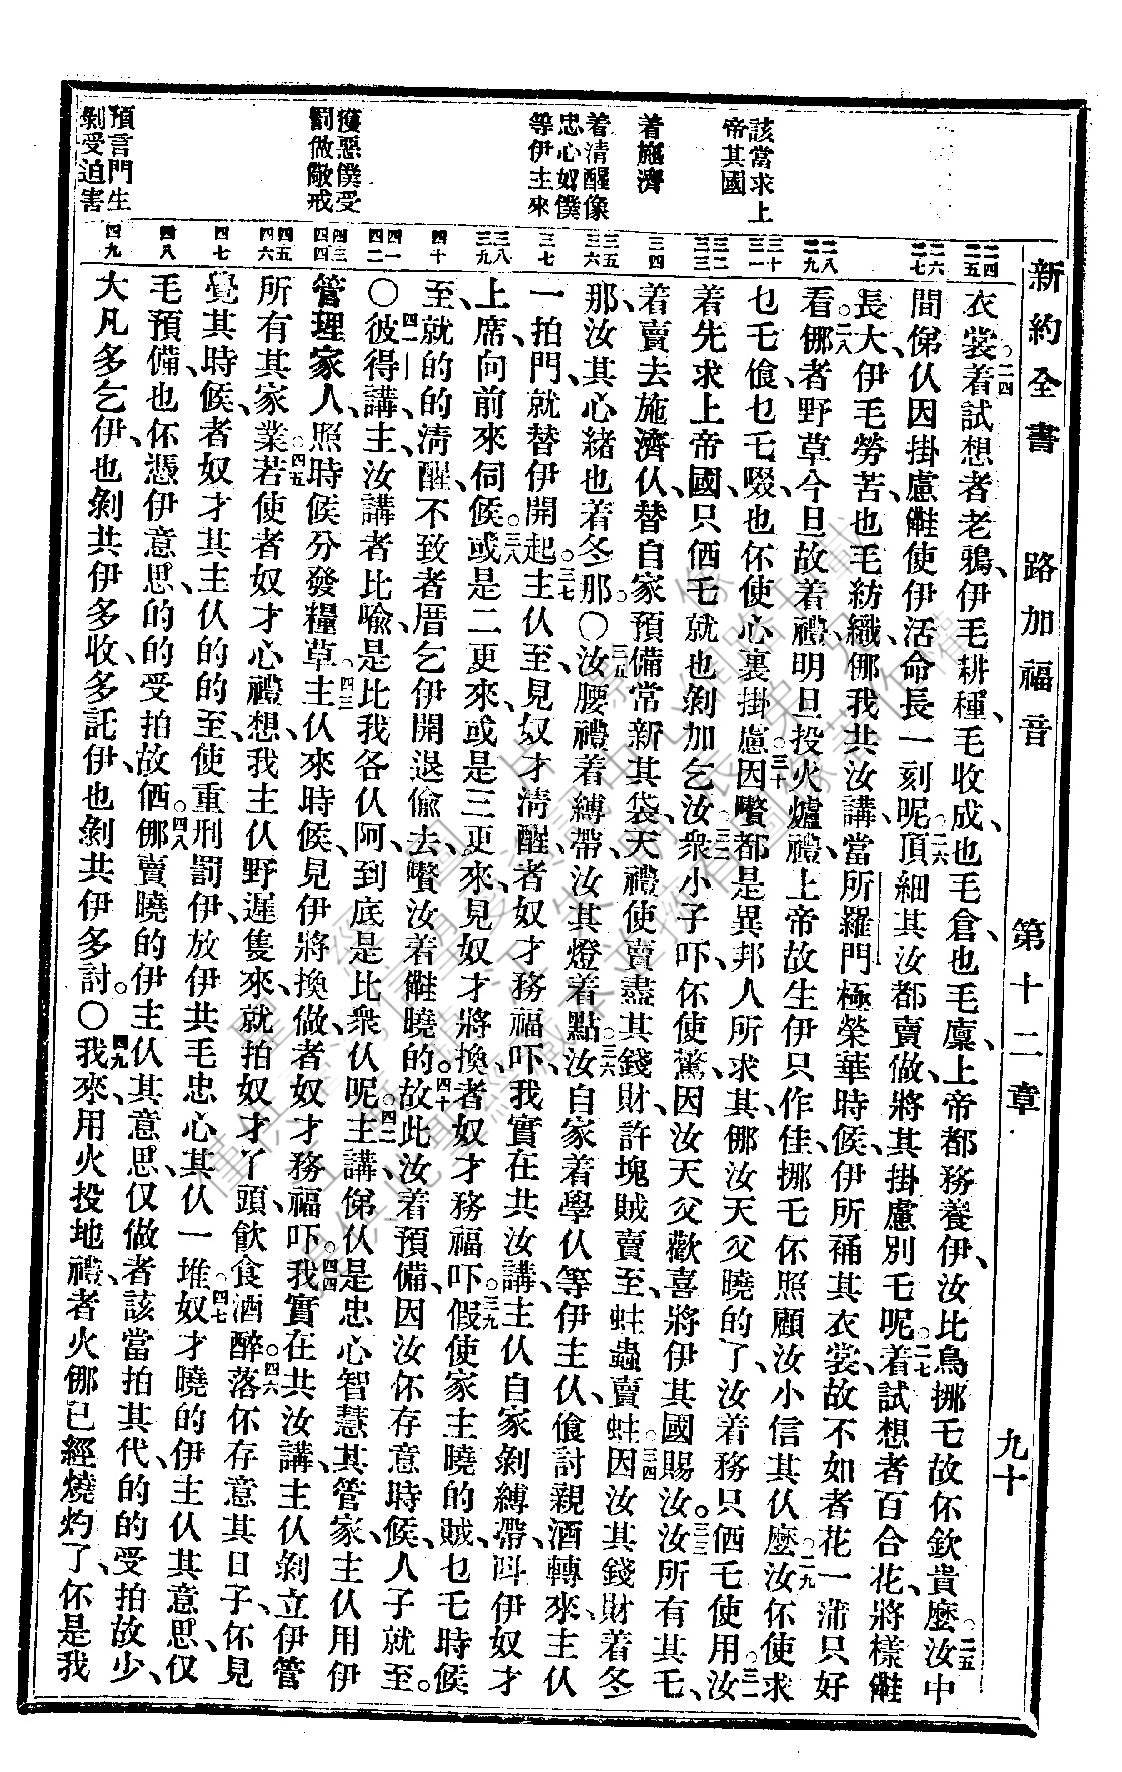 新約全書　路加福音　第十二章　九十
該當求上
帝其國
着施濟
着清醒像
忠心奴僕
等伊主來
獲惡僕受
罰做儆戒
預言門生
剝受迫害
二四
二五
二六
二七
二八
二九
三十
三一
三二
三三
三四
三五
三六
三七
三八
三九
四十
四一
四二
四三
四四
四五
四六
四七
四八
四九
衣裳着試想者老鴉伊毛耕種、毛收成也毛倉也毛廩、上帝都務養伊、汝比鳥挪乇故伓欽貴麼。二五汝中
間俤仈因掛慮㑚使伊活命長一刻呢。二六頂細其汝都賣做、將其掛慮別乇呢。二七着試想者百合花、將樣㑚
長大、伊毛勞苦也毛紡織、㑚我共汝講、當所羅門極榮華時候、伊所裓其衣裳、故不如者花一蒲只好
看。二八㑚者野草今旦故着禮、明旦投火爐禮、上帝故生伊只作佳、挪乇伓照顧汝小信其仈麼。二九汝伓使求
乜乇倽乜乇啜、也伓使心裏掛慮。三十因嚽都是異邦人所求其、㑚汝天父曉的了、汝着務只佰乇使用。三一汝
着先求上帝國、只佰乇就也剝加乞汝。三二衆小子吓、伓使驚、因汝天父歡喜將伊其國賜汝。三三汝所有其乇、
着賣去施濟仈、替自家預備常新其袋、天禮使賣盡其錢財、許塊賊賣至、蛀蟲賣蛀。三四因汝其錢財着冬
那、汝其心緒也着冬那。〇三五汝腰禮着縛帶、汝其燈着點。三六汝自家着學仈等伊主仈、倽討親酒轉來、主仈
一拍門、就替伊開起。三七主仈至、見奴才清醒、者奴才務福吓、我實在共汝講、主仈自家剝縛帶、呌伊奴才
上席、向前來伺候。三八或是二更來、或是三更來、見奴才將換、者奴才務福吓。三九假使家主曉的賊乜乇時候
至、就的的清醒、不致者厝乞伊開退偷去、嚽汝着㑚曉的。四十故此汝着預備、因汝伓存意時候、人子就至。
〇四一彼得講、主、汝講者比喻、是比我各仈阿、到底是比衆仈呢。四二主講、俤仈是忠心智慧其管家、主仈用伊
管理家人、照時候分發糧草。四三主仈來時候、見伊將換做、者奴才務福吓。四四我實在共汝講、主仈剝立伊管
所有其家業。四五若使者奴才心禮想、我主仈野遲隻來、就拍奴才丫頭、飲食酒醉落。四六伓存意其日子、伓見
覺其時候、者奴才其主仈的的至、使重刑罰伊、放伊共毛忠心其仈一堆。四七奴才曉的伊主仈其意思、仅
毛預備、也伓憑伊意思、的的受拍故佰。四八㑚賣曉的伊主仈其意思、仅做者該當拍其代、的的受拍故少、
大凡多乞伊、也剝共伊多收、多託伊、也剝共伊多討。〇四九我來用火投地禮、者火㑚已經燒灼了、伓是我